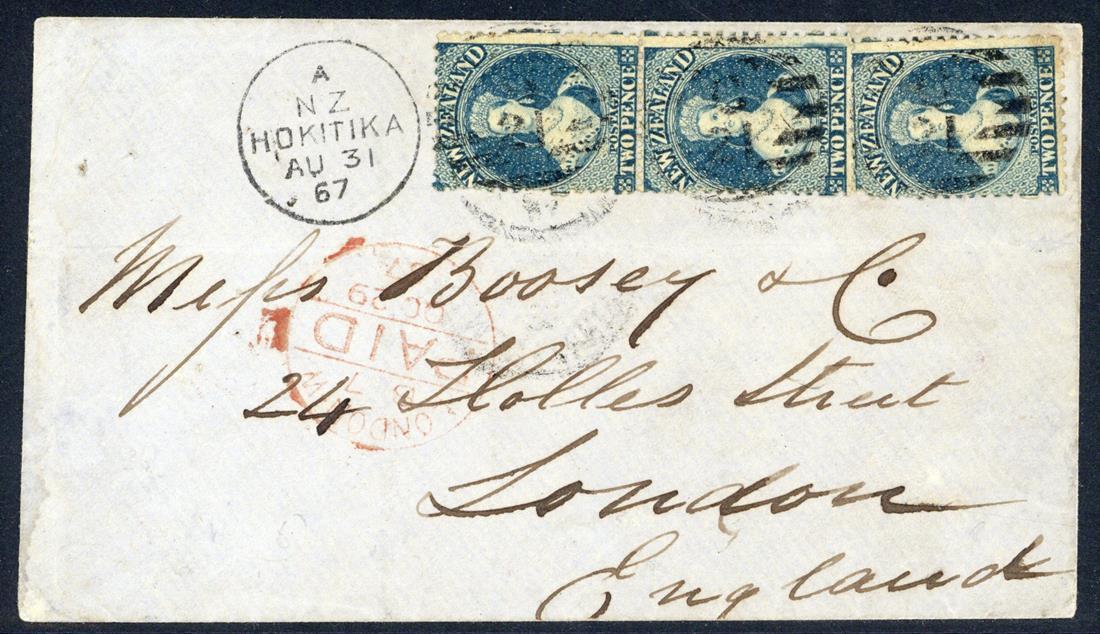 A
NZ
HOKITIKA
AU 31
67
NEW ZEALAND
POSTAGE
TWO PENCE
NEW ZEALAND
POSTAGE
TWO PENCE
NEW ZEALAND
POSTAGE
TWO PENCE
Messs Boosey & Co
OC 29
PAID
LONDON
24 Holles Street
London
England